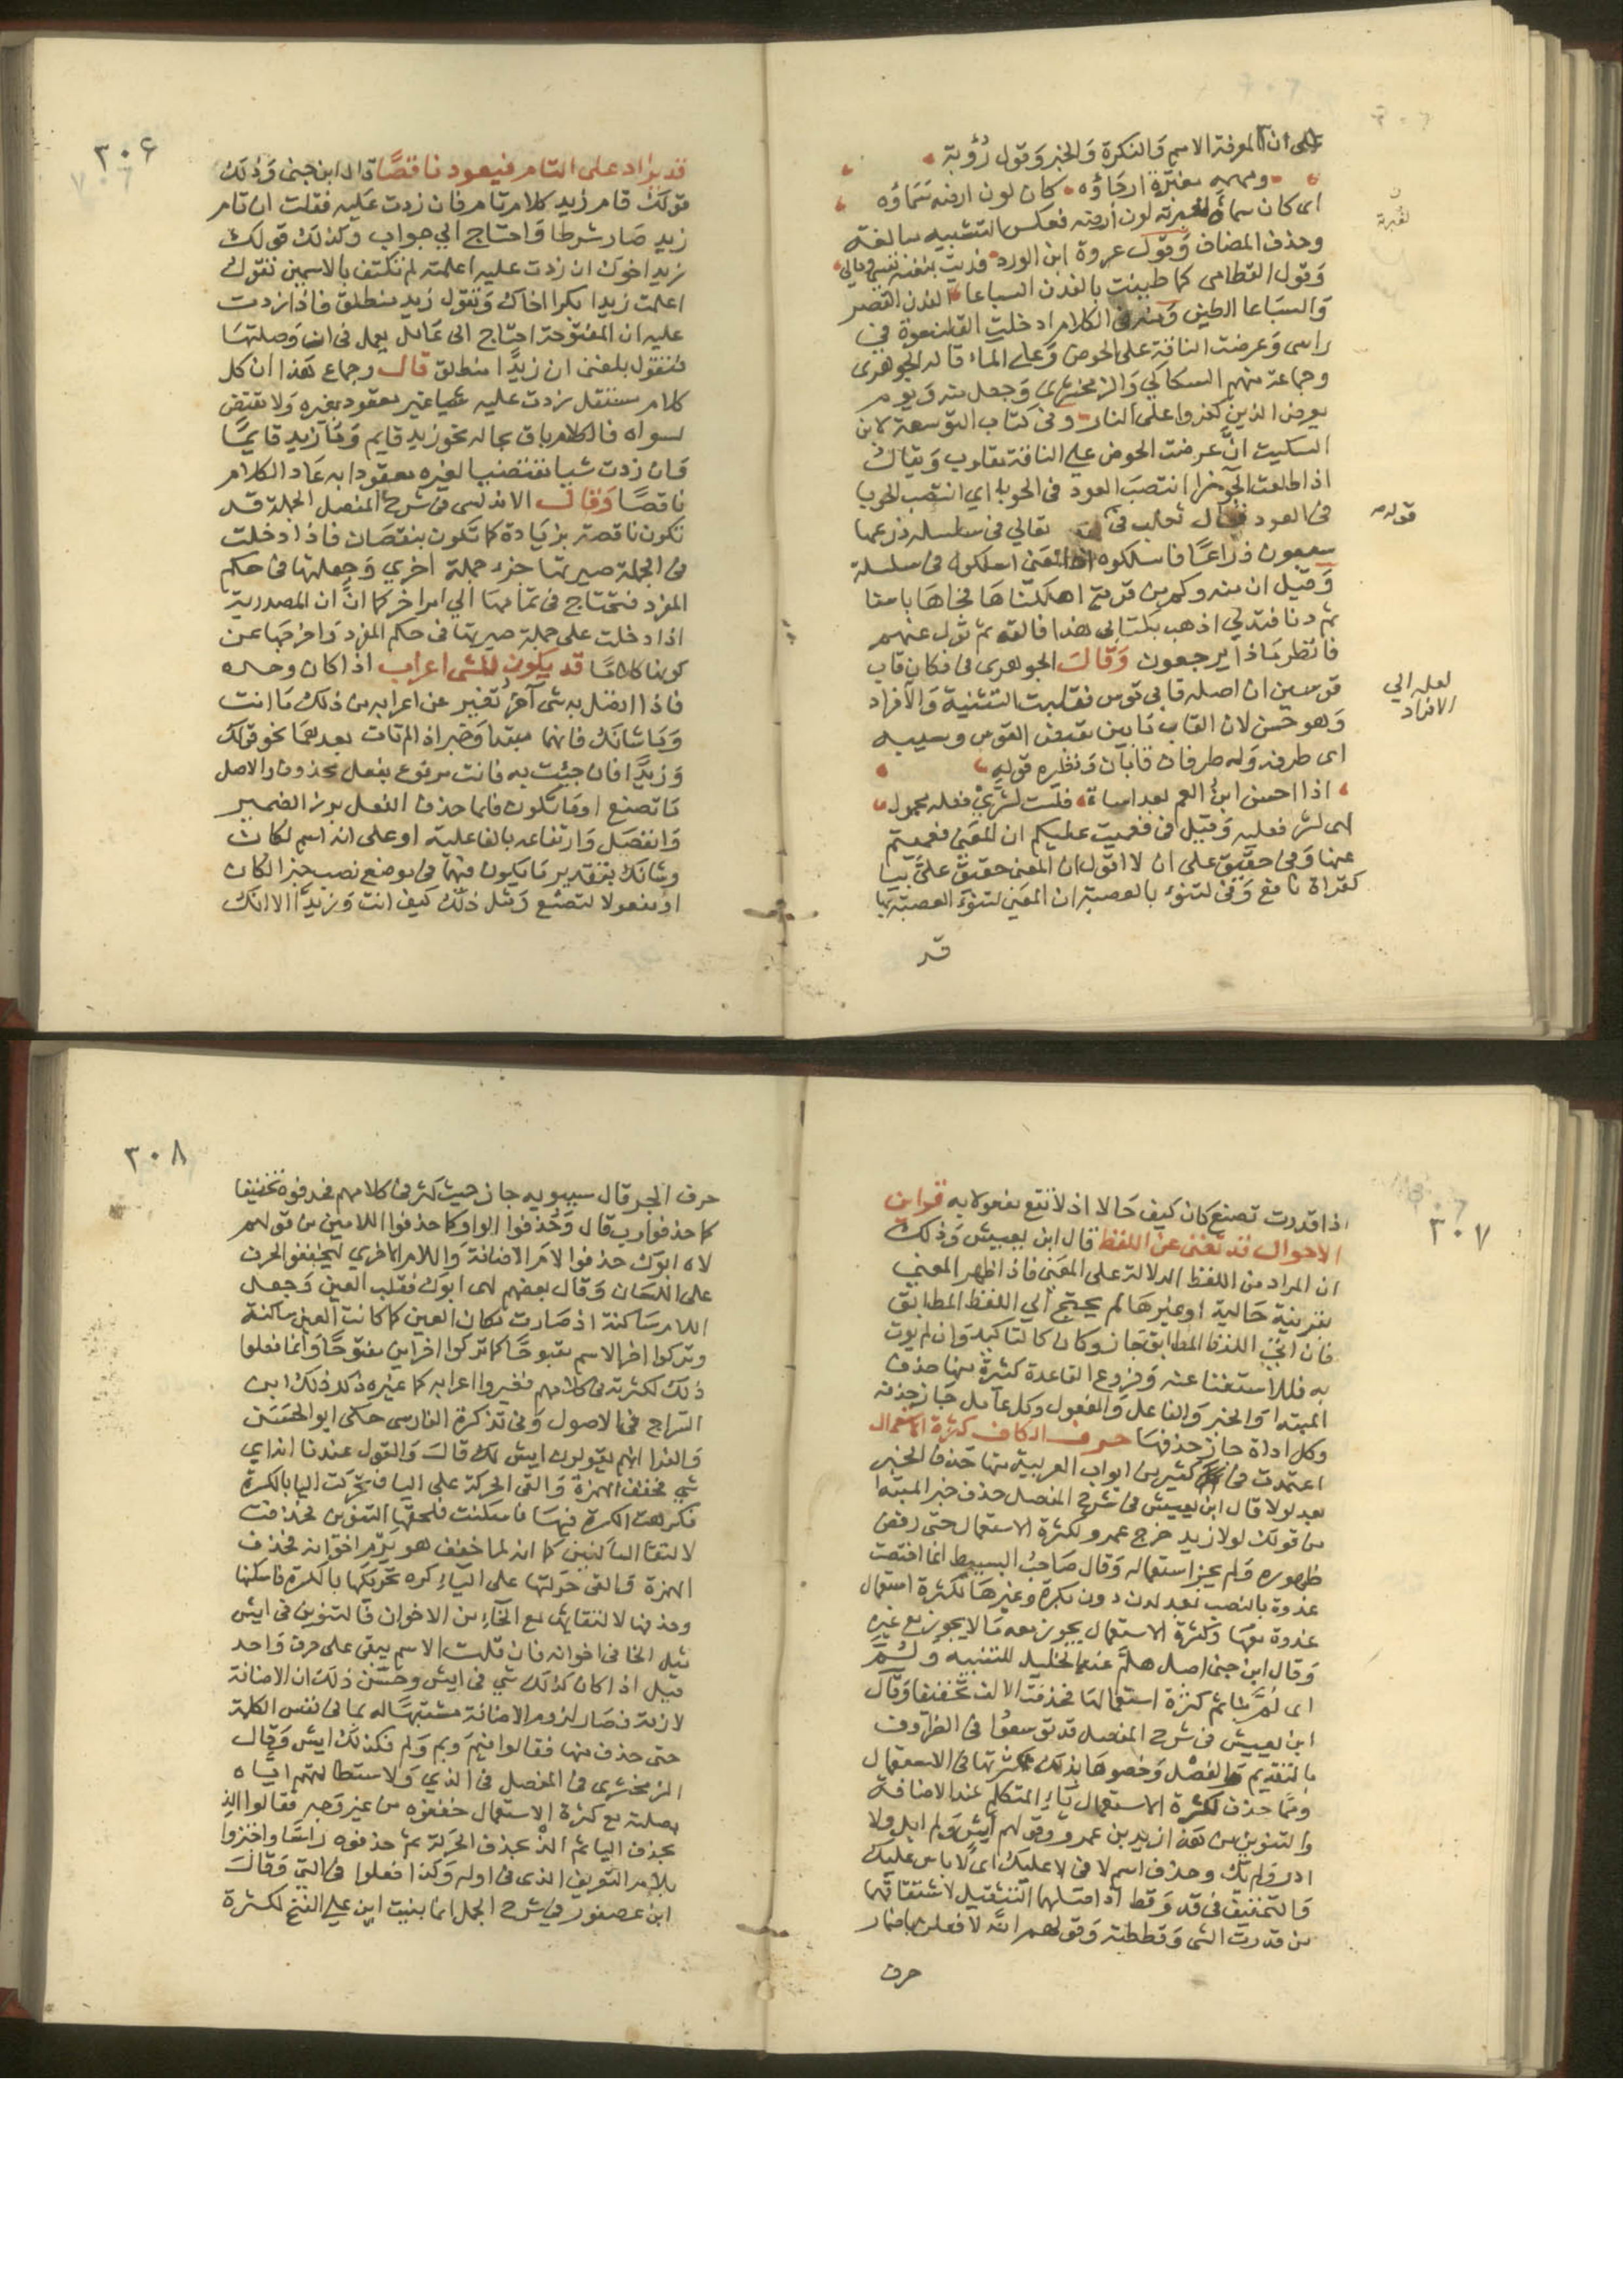 على ان المعرفة الاسم والنكرة والخبر وقول رؤبة
ومهمه مغبرة ارجاؤه كان لون ارضه سماؤه
اى كان سماؤه لغبرته لون أرضه فعكس التشبيه مبالغة
لغبرته
وحذف المضاف وقول عروة ابن الورد فديت بنفسه نفسي ومالي
وقول القطامى كما طينت بالفدن السياعا الفدن القصر
والسياعا الطين ومنه فى الكلام ادخلت القلنسوة في
راسى وعرضت الناقة على الحوض وعلى الماء قاله الجوهرى
وجماعة منهم السكاكي والزمخشري وجعل منه ويوم
يعرض الذين كفروا على النار وفى كتاب التوسعة لابن
السكيت ان عرضت الحوض على الناقة مقلوب ويقال
اذا طلعت الجوزا انتصب العود فى الحربا اى انتصب الحربا
فى العود وقال ثعلب فى تعالى فى سلسلة ذرعها
قوله
سبعون ذراعا فاسلكوه ان المعنى اسلكوا فى سلسلة
وقيل ان منه وكم من قرية اهلكناها فجاها باسنا
ثم دنا فتدلى اذهب بكتابى هذا فالقه ثم تول عنهم
فانظر ماذا يرجعون وقال الجوهرى فى فكان قاب
قوسين ان اصله قابى قوس فقلبت التثنية والافراد
لعله الي
الافراد
وهو حسن لان القاب ما بين مقبض القوس وسيته
اى طرفه وله طرفان قابان ونظيره قوله
اذا احسن ابن العم بعد اساة فلست لشرى فعله بحمول
اى لشر فعليه وقيل فى فعميت عليكم ان المعنى فعميتم
عنها وفى حقيق على ان لا اقول ان المعنى حقيق على بيا
كقراة نافع وفى لتنوء بالعصبة ان المعنى لتنوء العصبة بها
قد
٣٠٦
قد يزاد على التام فيعود ناقصا قال ابن جنى وذلك
قولك قام زيد كلام تام فان زدت عليه فقلت ان قام
زيد صار شرطا واحتاج الي جواب وكذلك قولك
زيد اخوك ان زدت عليه اعلمت لم تكتف بالاسمين تقول
اعلمت زيدا بكرا اخاك وتقول زيد منطلق فاذا زدت
عليه ان المفتوحة احتاج الى عامل يعمل فى ان وصلتها
فتقول بلغنى ان زيدا منطلق قال وجماع هذا ان كل
كلام مستقل زدت عليه شيا غير معقود بغيره ولا مقتض
لسواه فالكلام باق بحاله نحو زيد قايم وما زيد قايما
فان زدت شيا مقتضيا لغيره معقودا به عاد الكلام
ناقصا وقال الاندلسى فى شرح المفصل الجملة قد
تكون ناقصة بزيادة كما تكون بنقصان فاذا دخلت
فى الجملة صيرتها جزء جملة اخري وجعلتها فى حكم
المفرد فتحتاج فى تمامها الي امر اخر كما ان ان المصدرية
اذا دخلت على جملة صيرتها فى حكم المفرد واخرجتها عن
كونها كلاما قد يكون للشى اعراب اذا كان وحده
فاذا اتصل به شى آخر تغير عن اعرابه من ذلك ما انت
وما شانك فانهما مبتدا وخبر اذ لم تات بعدهما نحو قولك
وزيدا فان جيئت به فانت مرفوع بفعل محذوف والاصل
ما تصنع او ما تكون فلما حذف الفعل برز الضمير
وانفصل وارتفاعه بالفاعلية او على انه اسم لكان
وشانك بتقدير ما يكون فيهما فى موضع نصب خبرا لكان
او مفعولا لتصنع ومثل ذلك كيف انت وزيدا الا انك
٣٠٧
اذا قدرت تصنع كان كيف حالا اذ لا تقع مفعولا به قراين
الاحوال قد تغنى عن اللفظ قال ابن يعيش وذلك
ان المراد من اللفظ الدلالة على المعنى فاذا ظهر المعنى
بقرينة حالية او غيرها لم يحتج الي اللفظ المطابق
فان اتى اللفظ المطابق جاز وكان كالتاكيد وان لم يوت
به فللاستغنا عنه وفروع القاعدة كثيرة منها حذف
المبتدا والخبر والفاعل والمفعول وكل عامل جاز حذفه
وكل اداة جاز حذفها حرف الكاف كثرة الاستعمال
اعتمدت فى كثير من ابواب العربية منها حذف الخبر
بعد لولا قال ابن يعيش فى شرح المفصل حذف خبر المبتدا
من قولك لولا زيد خرج عمرو لكثرة الاستعمال حتى رفض
ظهوره ولم يجز استعماله وقال صاحب البسيط انما اختصت
غدوة بالنصب بعد لدن دون بكرة وغيرها لكثرة استعمال
غدوة معها وكثرة الاستعمال يجوز معه ما لا يجوز مع غيره
وقال ابن جنى اصل هلم عند الخليل للتنبيه ولم
اى لم بنا ثم كثرة استعمالها فحذفت الالف تخفيفا وقال
ابن يعيش فى شرح المفصل قد توسعوا فى الظروف
بالتقديم والفصل وخصوها بذلك لكثرتها فى الاستعمال
ومما حذف لكثرة الاستعمال ياء المتكلم عند الاضافة
والتنوين من هذا زيد بن عمرو وقولهم ايش ولم ابل ولا
ادر ولم يك وحذف اسم لا فى لا عليك اى لا باس عليك
والتخفيف فى قد وقط اذ اصلهما التثقيل لاشتقاقهما
من قددت الشى وقططته وقولهم الله لافعلن باضمار
حرف
٣٠٨
حرف الجر قال سيبويه جاز حيث كثر فى كلامهم فحذفوه تخفيفا
كما حذفوا رب قال وحذفوا الواو كما حذفوا اللامين من قولهم
لاه ابوك حذفوا لام الاضافة واللام الاخري ليخففوا الحرف
على اللسان وقال بعضهم لهى ابوك فقلب العين وجعل
اللام ساكنة اذ صارت مكان العين كما كانت العين ساكنة
وتركوا اخر الاسم مفتوحا كما تركوا اخر اين مفتوحا وانما فعلوا
ذلك لكثرته فى كلامهم فغيروا اعرابه كما غيره ذكر ذلك ابن
السراج فى الاصول وفى تذكرة الفارسى حكى ابو الحسن
والفرا انهم يقولون ايش لك قال والقول عندنا انه اى
شى فخفف الهمزة والقى الحركة على اليا فتحركت اليا بالكسرة
فكرهت الكسرة فيها فاسكنت فلحقها التنوين فحذفت
لالتقا الساكنين كما انه لما خفف هو يرم اخوانه فحذف
الهمزة والقى حركتها على الياء كره تحريكها بالكسرة فاسكنها
وحذفها لالتقائها مع الخاء من الاخوان فالتنوين فى ايش
مثل الخا فى اخوانه فان قلت الاسم يبقى على حرف واحد
قيل اذا كان كذلك شى فى ايش وحسن ذلك ان الاضافة
لازمة فصار لزوم الاضافة مشبها له بما فى نفس الكلمة
حتى حذف منها فقالوا فيم وبم ولم فكذلك ايش وقال
الزمخشرى فى المفصل فى الذي ولاستطالتهم اياه
بصلته مع كثرة الاستعمال خففوه من غير وجه فقالوا الذ
بحذف اليا ثم الذ بحذف الحركة ثم حذفوه راسا واجتزوا
بلام التعريف الذى فى اوله وكذا فعلوا فى التى وقال
ابن عصفور فى شرح الجمل انما بنيت اين على الفتح لكثرة